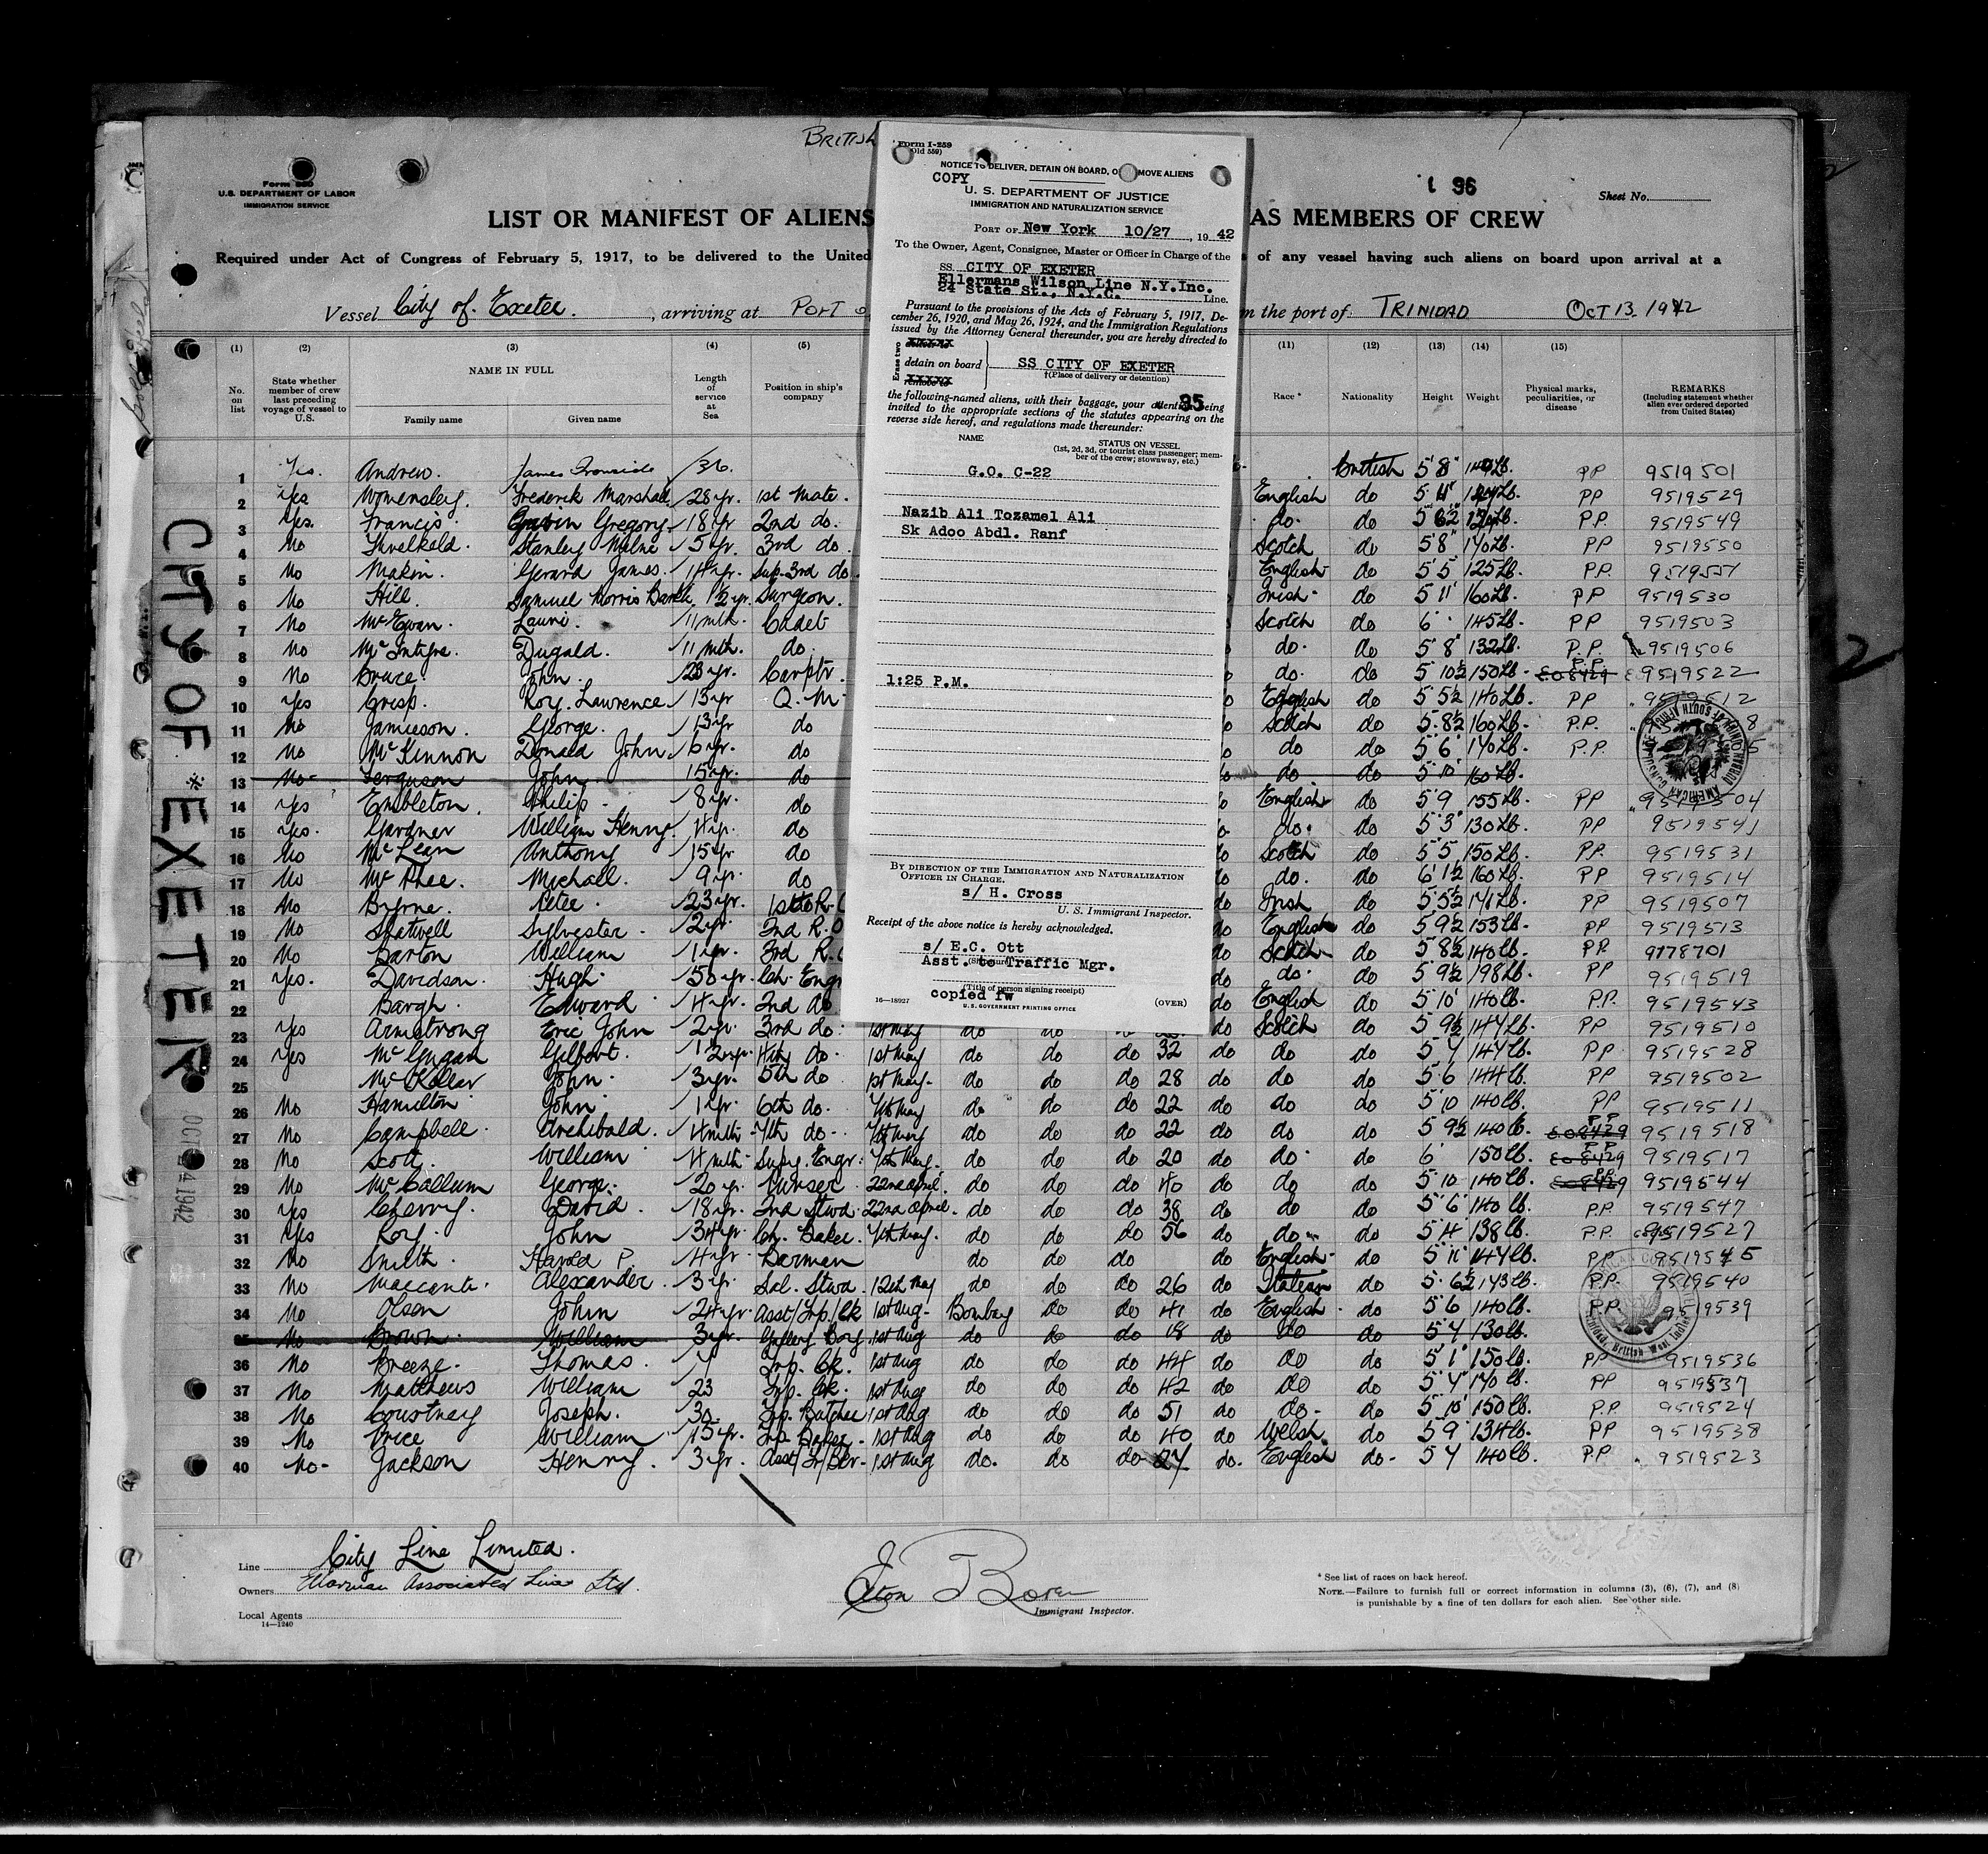 BRITISH
Form 680
U.S. DEPARTMENT OF LABOR
IMMIGRATION SERVICE
196
Sheet No.
LIST OR MANIFEST OF ALIENS AS MEMBERS OF CREW
Required under Act of Congress of February 5, 1917, to be delivered to the United of any vessel having such aliens on board upon arrival at a
Vessel City of Exeter. , arriving at PORT the port of TRINIDAD OCT 13. 1942
(1) (2) (3) (4) (5) (11) (12) (13) (14) (15)
No. on list
State whether member of crew last preceding voyage of vessel to U.S.
NAME IN FULL
Family name Given name
Length of service at Sea
Position in ship's company
Race *
Nationality
Height
Weight
Physical marks, peculiarities, or disease
REMARKS
(Including statement whether alien ever ordered deported from United States)
Form I-259
(Old 559)
NOTICE TO DELIVER, DETAIN ON BOARD, O MOVE ALIENS
COPY
U. S. DEPARTMENT OF JUSTICE
IMMIGRATION AND NATURALIZATION SERVICE
PORT OF New York 10/27, 1942
To the Owner, Agent, Consignee, Master or Officer in Charge of the
SS. CITY OF EXETER
Ellermans Wilson Line N.Y.Inc.
24 State St., N.Y.C. Line.
Pursuant to the provisions of the Acts of February 5, 1917, De-
cember 26, 1920, and May 26, 1924, and the Immigration Regulations
issued by the Attorney General thereunder, you are hereby directed to
Erase two
deliver to
detain on board SS CITY OF EXETER
remove to
†(Place of delivery or detention)
the following-named aliens, with their baggage, your attention being
35
invited to the appropriate sections of the statutes appearing on the
reverse side hereof, and regulations made thereunder:
NAME STATUS ON VESSEL
(1st, 2d, 3d, or tourist class passenger; mem-
ber of the crew; stowaway, etc.)
G.O. C-22
Nazib Ali Tozamel Ali
Sk Adoo Abdl. Ranf
1:25 P.M.
BY DIRECTION OF THE IMMIGRATION AND NATURALIZATION
OFFICER IN CHARGE.
s/ H. Cross
U. S. Immigrant Inspector.
Receipt of the above notice is hereby acknowledged.
s/ E.C. Ott
(Signature)
Asst. to Traffic Mgr.
(Title of person signing receipt)
copied fw
16—18927 U.S. GOVERNMENT PRINTING OFFICE (OVER)
1 Yes. Andrew. James Ironside 36. British 5'8" 140Lb. PP 9519501
2 Yes Womersley. Frederick Marshall 28yr. 1st Mate. English do 5'11" Lb. PP 9519529
3 Yes. Francis. Gavin Gregory 18yr 2nd do. do. do Lb. P.P. 9519549
4 No Threlkeld. Stanley Milne 5yr. 3rd do. Scotch do 5'8" 140Lb. PP 9519550
5 No Makin. Gerard James. 14yr. Sup. 3rd do. English do 5'5 125Lb. P.P. 9519551
6 No Hill. Samuel Morris 2yr. Surgeon. Irish do 5'11 160Lb. PP 9519530
7 No McEwan. Lauri. 11mth. Cadet Scotch do 6' 145Lb. PP 9519503
8 No McIntyre. Dugald. 11mth. do. do. do 5'8" 132Lb. P.P. 9519506
9 No Bruce. John. 23yr. Carptr. do. do 5'10½ 150Lb. P.P. E08429 9519522
10 Yes Crisp. Roy. Lawrence. 13yr Q.M. English do 5'5½ 140Lb. PP 9519512
11 No Jamieson. George. 13yr do Scotch do 5'8½ 160Lb. P.P.
12 No McKinnon Donald John. 6yr. do do do 5'6 140Lb. P.P.
13 No Ferguson John 15yr. do do. do 5'10 160Lb.
14 Yes Embleton. Philip. 8yr. do English do 5'9 155Lb. PP 9519504
15 Yes. Gardner William Henry. 4yr. do do. do 5'3" 130Lb. PP 9519541
16 No McLean Anthony 15yr do Scotch do 5'5 150Lb. PP. 9519531
17 No McPhee. Michael. 9yr. do do. do 6'1½ 160Lb. PP 9519514
18 No Byrne. Peter. 23yr. 1st R. Irish do 5'5½ 141Lb. PP 9519507
19 No Statwell Sylvester. 2yr. 2nd R.O English do 5'9½ 153Lb. PP 9519513
20 No Barton William 1yr. 3rd R. Scotch do 5'8½ 140Lb. PP. 9178701
21 Yes. Davidson. Hugh 50yr. Ch. Engr do. do 5'9½ 198Lb. PP 9519519
22 Bargh. Edward 4yr. 2nd do English do 5'10 140Lb. P.P. 9519543
23 Yes Armstrong Eric John 2yr. 3rd do. 1st May do do do Scotch do 5'9½ 144Lb. PP 9519510
24 Yes McGugan Gilbert. 4th do. 1st May do do do 32 do do do 5'7 144Lb. PP 9519528
25 McKellar John. 3yr. 5th do 1st May. do do do 28 do do do 5'6 144Lb. PP 9519502
26 No Hamilton John. 1yr. 6th do. 7th May do do do 22 do do do 5'10 140Lb. PP 9519511
27 No Campbell. Archibald. 4mth 7th do. 7th May do do do 22 do do. do 5'9½ 140Lb. P.P. E08429 9519518
28 No Scott. William 4mth Supy. Engr. 7th May. do do do 20 do do. do 6' 150Lb. P.P. E08429 9519517
29 No McCallum George. 20yr. Purser. 22nd April. do do do 40 do do. do 5'10 140Lb. P.P. E08429 9519544
30 Yes Cherry. David. 18yr. 2nd Stwd. 22nd April. do do do 38 do do do 5'6" 140Lb. P.P. 9519547
31 Yes Roy. John 34yr. Ch. Baker. 7th May. do do do 56 do do do 5'4 138Lb. P.P. 9519527
32 No Smith. Harold P. 4yr Barman do do do English do 5'11" 144Lb. P.P. 9519545
33 No Maccanti. Alexander. 3yr. Sal. Stwd. 12th May do do do 26 do Italian do 5'6½ 143Lb. P.P. 9519540
34 No Olsen John 24yr. Asst/Trp./Ck 1st Aug. Bombay do do 41 do English do 5'6 140Lb. P.P. 9519539
35 No Brown. William 3yr. Galley Boy. 1st Aug do do do 18 do do do 5'4 130Lb.
36 No Breeze. Thomas. Trp. Ck. 1st Aug do do do 44 do do do 5'1" 150Lb. PP 9519536
37 No Matthews William 23 Trp. Ck. 1st Aug do do do 42 do do do 5'4" 140Lb. PP 9519537
38 No Courtney Joseph. 30 Trp. Butcher 1st Aug do do do 51 do do. do 5'10" 150Lb. P.P. 9519524
39 No Price William 15yr. Trp. Baker. 1st Aug do do do 40 do Welsh. do 5'9 134Lb. PP 9519538
40 No. Jackson Henry. 3yr. Asst/Tr/Bkr. 1st Aug do. do do 27 do. English do 5'7 140Lb. P.P. 9519523
CITY OF * EXETER
OCT 24 1942
2
Line City Line Limited.
Owners Ellerman Associated Lines Ltd.
Local Agents
14—1240
Elton
Immigrant Inspector.
* See list of races on back hereof.
NOTE.—Failure to furnish full or correct information in columns (3), (6), (7), and (8)
is punishable by a fine of ten dollars for each alien. See other side.